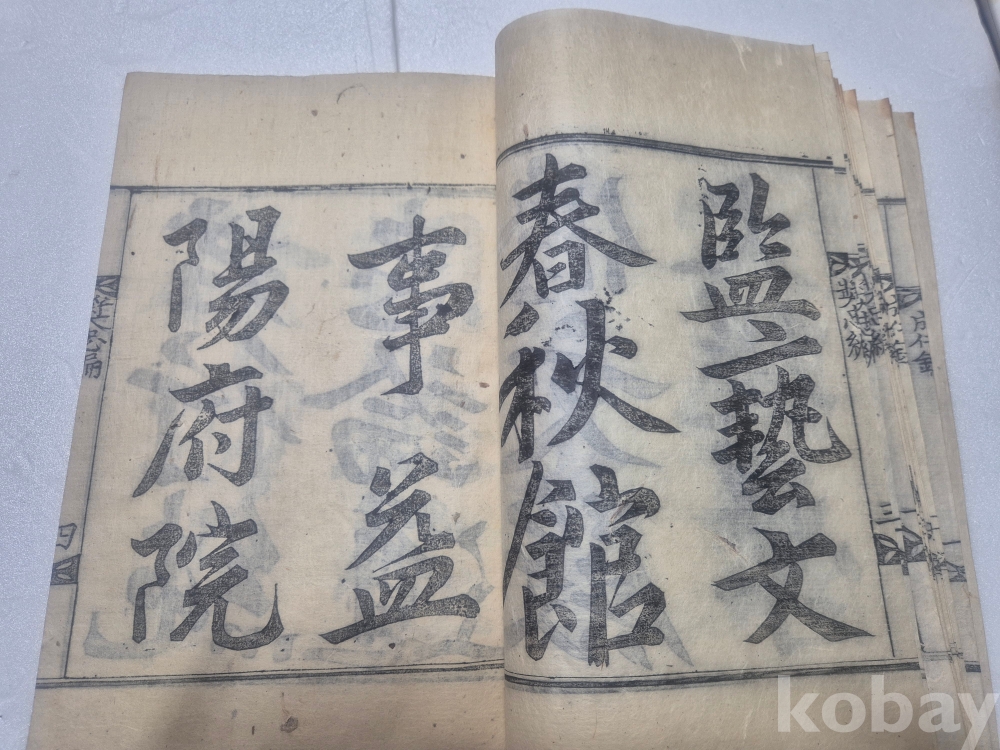 監藝文
春秋館
事益
陽府院
三
四
kobay